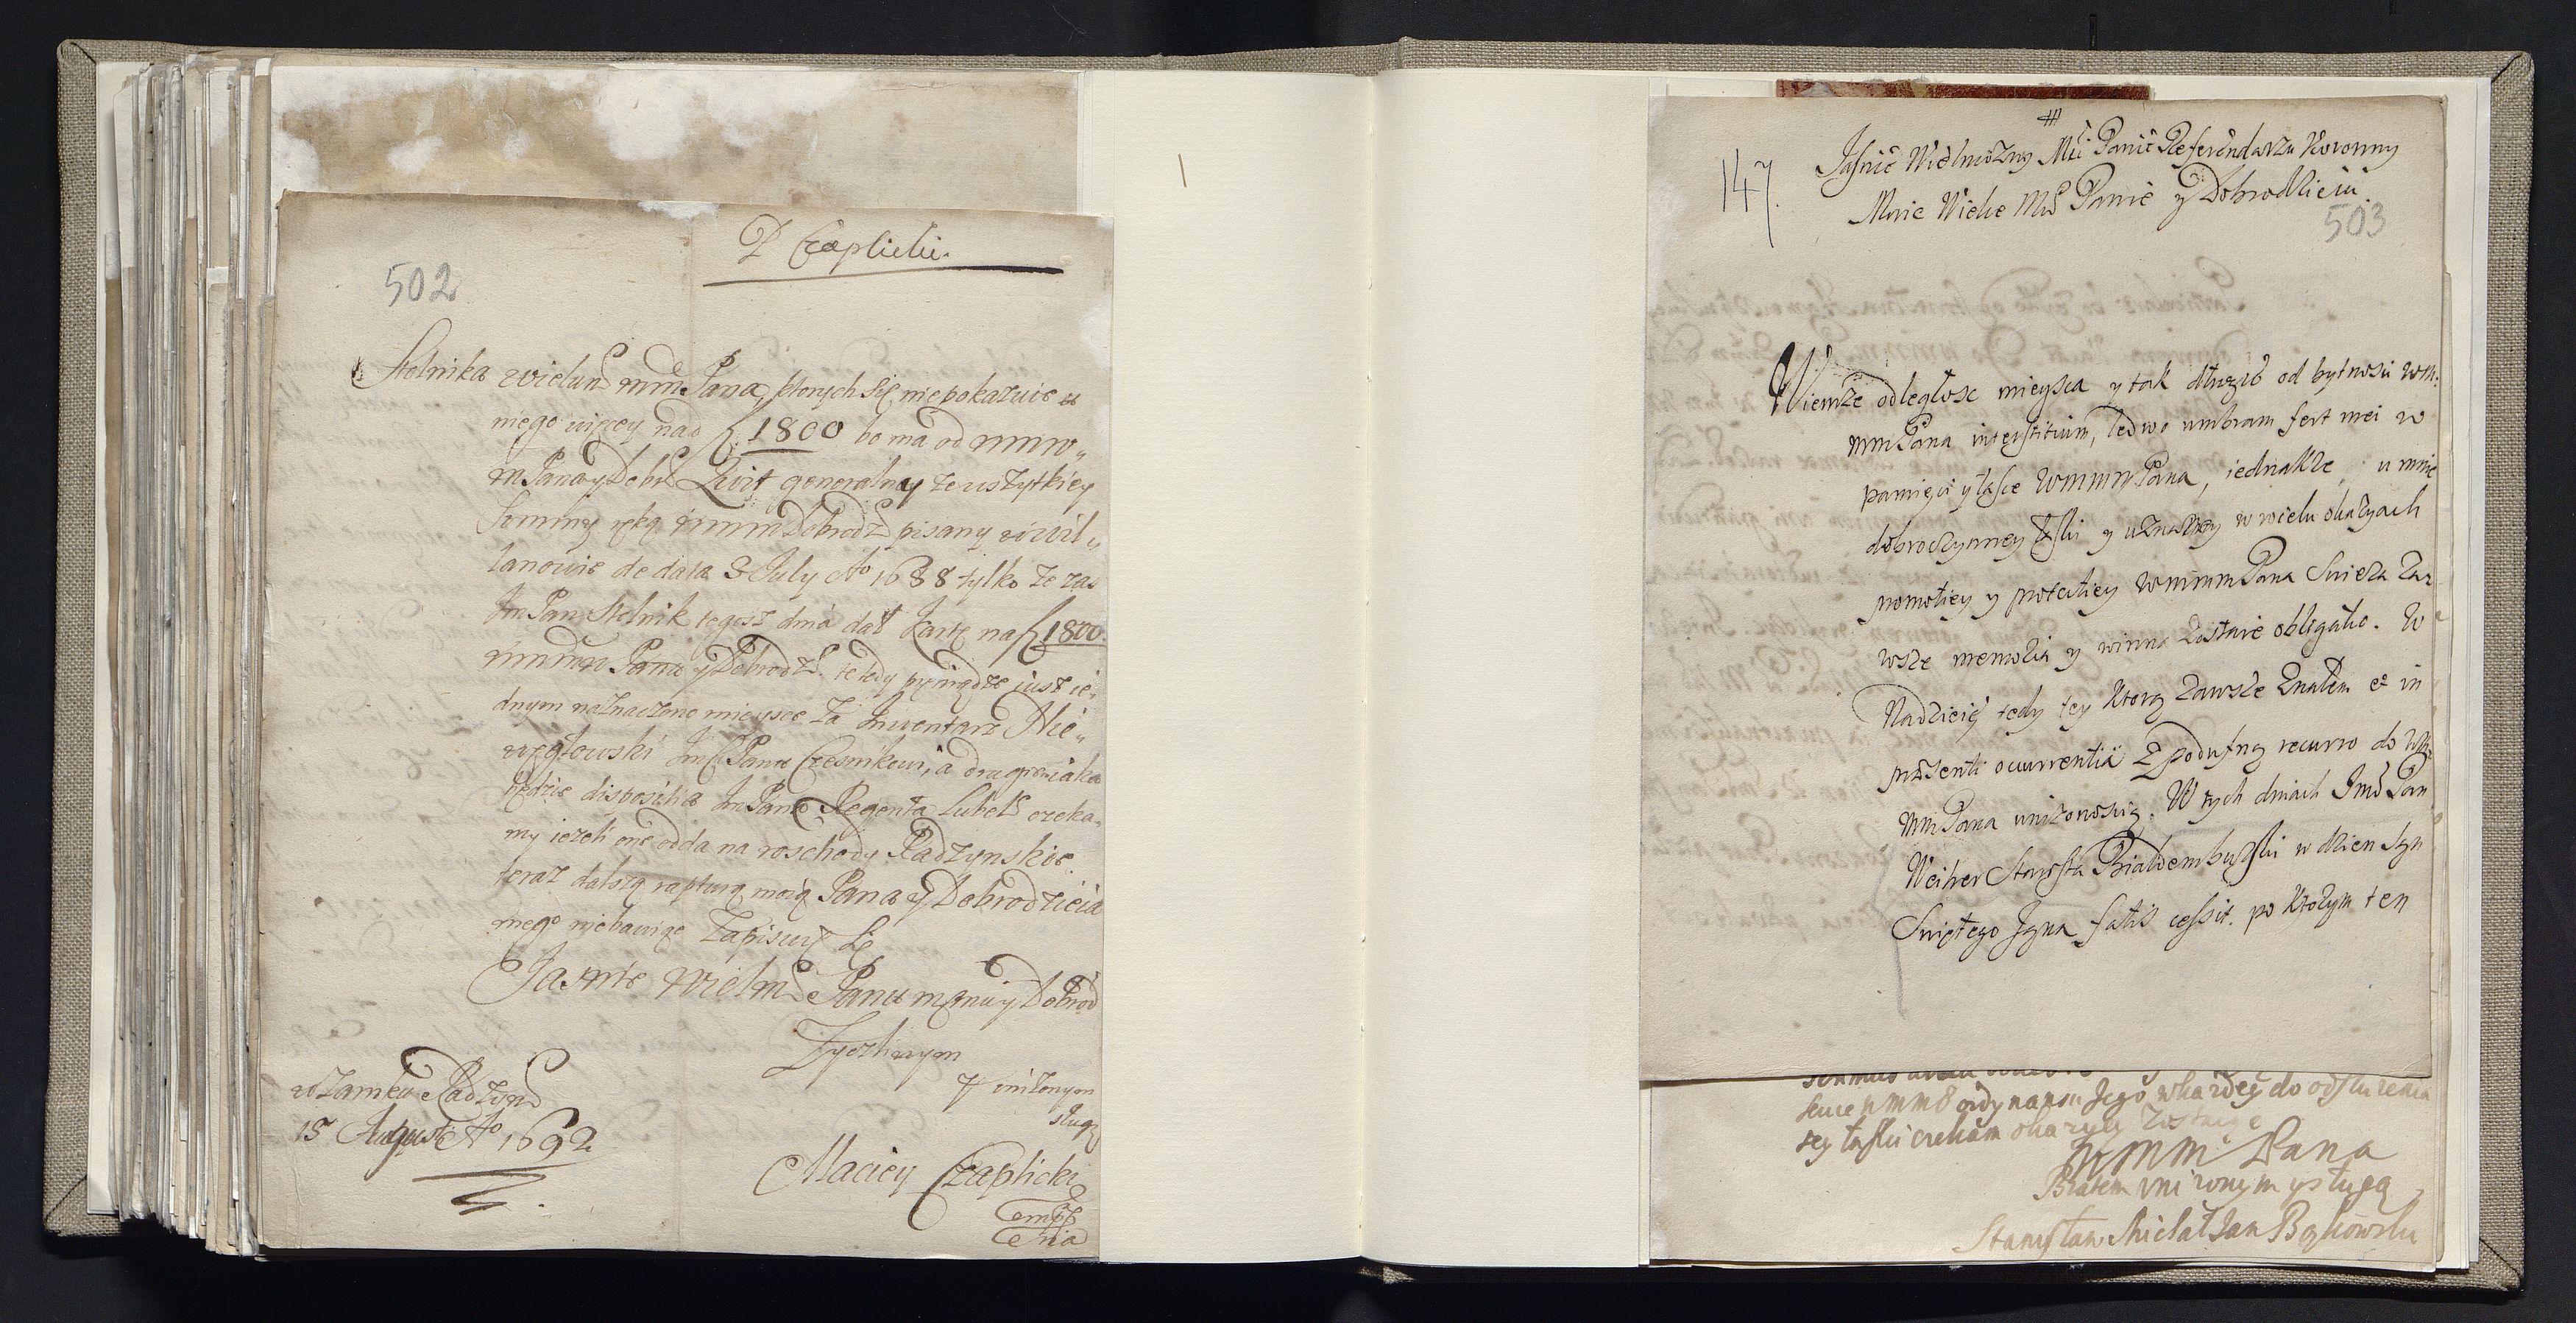 P Czaplicki.
502
Stolnika wieluns mm Pana, ktorych się nie pokazuie u
niego więcey nad f. 1800 bo ma od mmw„
m Pana y Dobr Quit generalny ze wszytkiey
summy ręką mmm Dobrodz pisany w Wil„
lanowie de data 3 July Ao 1688 tylko ze zas
Im Pan Stolnik tegosz dnia dał kartę na f 1800.
Panu y Dobrodz. te tedy pieniądze iusz ie„
dnym naznaczone mieysce za Inwentarz Nie„
węgłowski Im Pana Czesnikowi, a drugie iaka
będzie disposicia Im Pana Regenta Lubels czeka„
my iezeli one odda na roschody Radzynskie.
teraz dalszą rapturą moią Pana y Dobrodzieia
mego niebawiąc zapisuię się
Jasnie Wielm Panu memu y Dobrod
Zyczliwym
y unizonym
sługą
w Zamku Radzyns
15 Augusti Ao 1692
Maciey Czaplicki
147.
Jasnie Wielmozny Mci Panie Referendarzu Koronny
Mnie Wielce Mć Panie y Dobrodzieiu.
503
Wiem ze odległosc mieysca y tak długie od bytnosci wm:
mm Pana interstitium, ledwo umbram fert mei w
pamięci y łasce Wmmm Pana, iednakze u mnie
dobroczynney łaski y uznaney w wielu okazyach
promotiey y protectiey Wmmm Pana swieza zaw
wsze memoria y winna zostaie obligatio. W
Nadzieię tedy tey ktorą zawsze znałem et in
præsenti ocurrentia z podufną recurro do Wm
mm Pana unizonoscią. W tych dniach Jmć Pan
Weiher Starosta Białdemburski w dzien Szn
Swiętego Jana fatis cessit. po ktorym ten
sey łaski czekam okazyey zostaię
WMMć Pana
Bratem unizonym y sługą
Stanisław Michał Jan Bąkowski